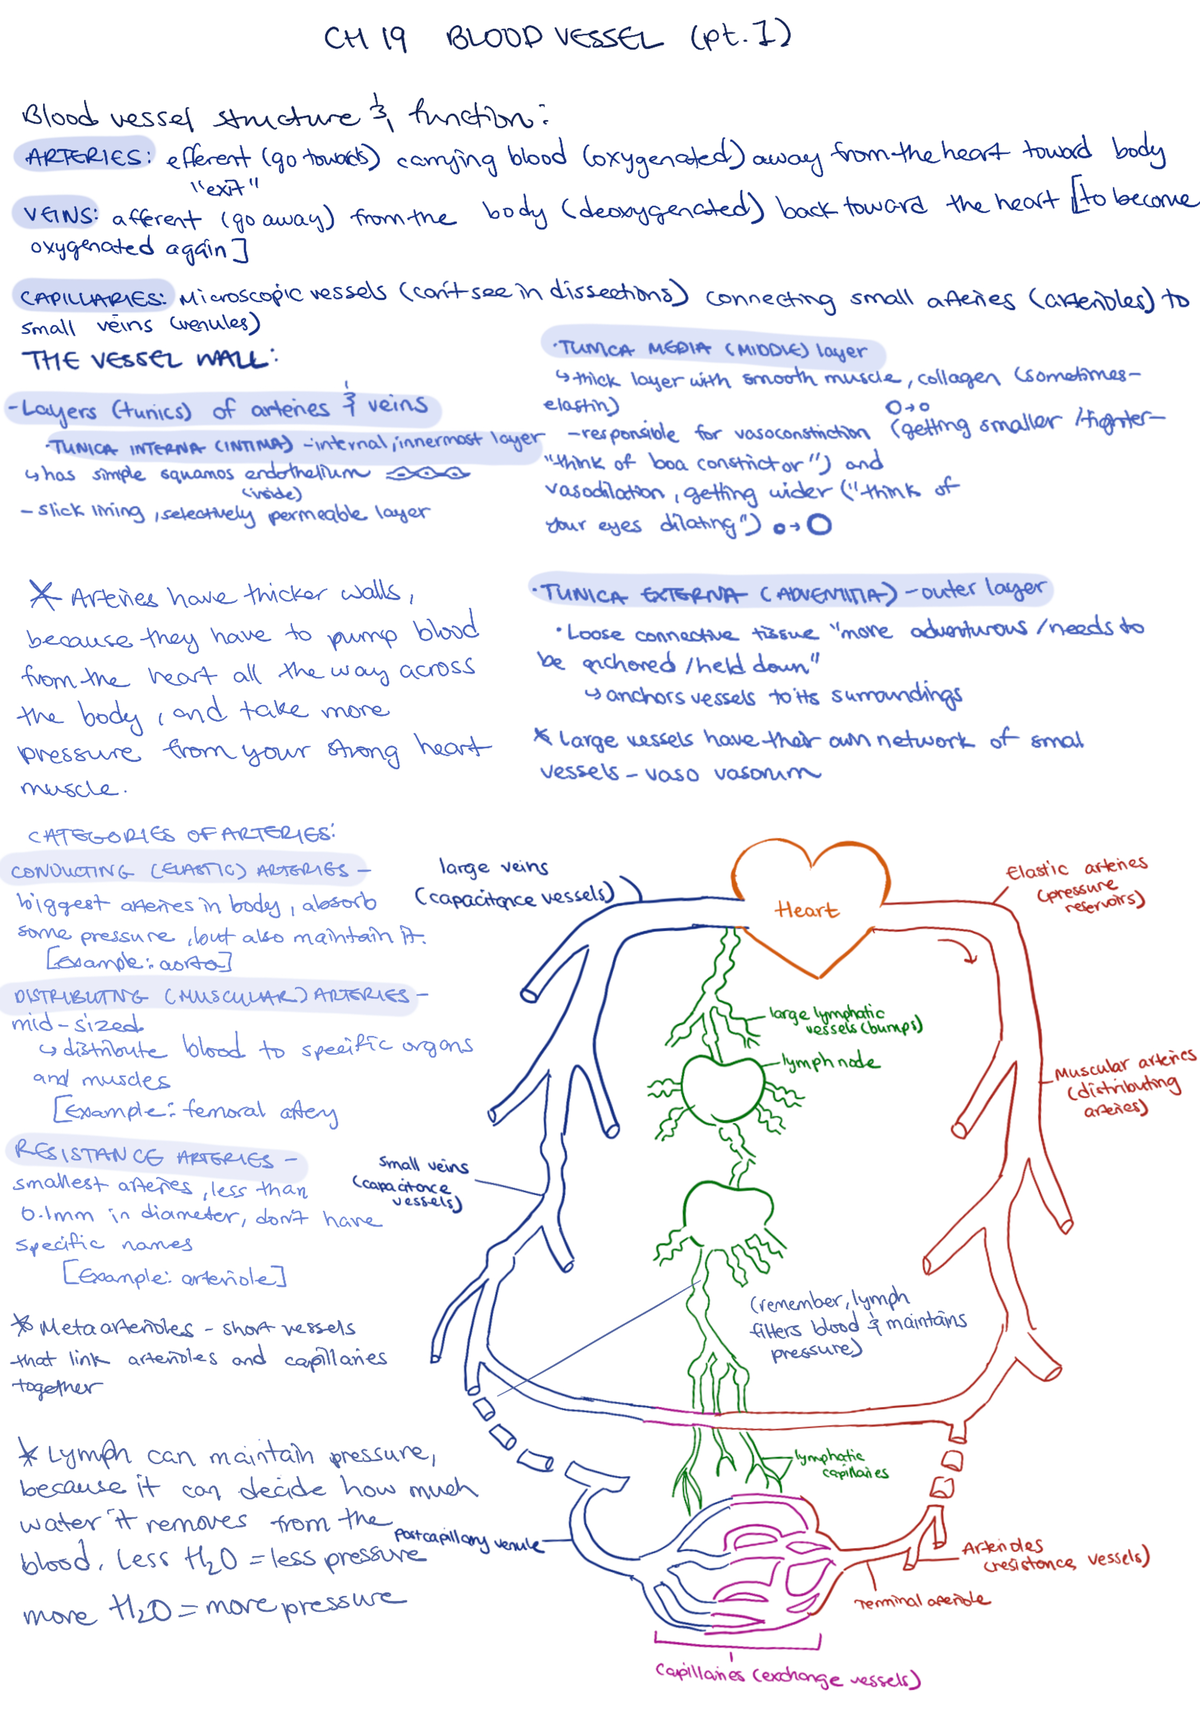 CH 19 BLOOD VESSEL (pt. I)
Blood vessel structure & function:
ARTERIES: efferent (go towards) carrying blood (oxygenated) away from the heart toward body
"exit"
VEINS: afferent (go away) from the body (deoxygenated) back toward the heart [to become
oxygenated again]
CAPILLARIES: Microscopic vessels (can't see in dissections) connecting small arteries (arterioles) to
small veins (venules)
THE VESSEL WALL:
-Layers (tunics) of arteries & veins
·TUNICA INTERNA (INTIMA) -internal, innermost layer
↳has simple squamos endothelium
(inside)
- slick lining, selectively permeable layer
·TUNICA MEDIA (MIDDLE) layer
↳thick layer with smooth muscle, collagen (sometimes-
elastin)
-responsible for vasoconstriction (getting smaller /tighter-
"think of boa constrictor") and
vasodilation, getting wider ("think of
your eyes dilating")
* Arteries have thicker walls,
because they have to pump blood
from the heart all the way across
the body, and take more
pressure from your strong heart
muscle.
·TUNICA EXTERNA (ADVENTITIA) - outer layer
·Loose connective tissue "more adventurous /needs to
be anchored /held down"
↳anchors vessels to its surroundings
* large vessels have their own network of small
vessels - vaso vasorum
CATEGORIES OF ARTERIES:
CONDUCTING (ELASTIC) ARTERIES -
biggest arteries in body, absorb
some pressure, but also maintain it.
[Example: aorta]
DISTRIBUTING (MUSCULAR) ARTERIES -
mid-sized
↳distribute blood to specific organs
and muscles
[Example: femoral artery
RESISTANCE ARTERIES -
smallest arteries, less than
0.1mm in diameter, don't have
specific names
[Example: arteriole]
* Metaarterioles - short vessels
that link arterioles and capillaries
together
* Lymph can maintain pressure,
because it can decide how much
water it removes from the
blood. Less H2O = less pressure
more H2O = more pressure
large veins
(capacitance vessels)
Heart
Elastic arteries
(pressure
reservoirs)
large lymphatic
vessels (bumps)
lymph node
Muscular arteries
(distributing
arteries)
small veins
(capacitance
vessels)
(remember, lymph
filters blood & maintains
pressure)
lymphatic
capillaries
postcapillary venule
Arterioles
(resistance vessels)
Terminal arteriole
Capillaries (exchange vessels)